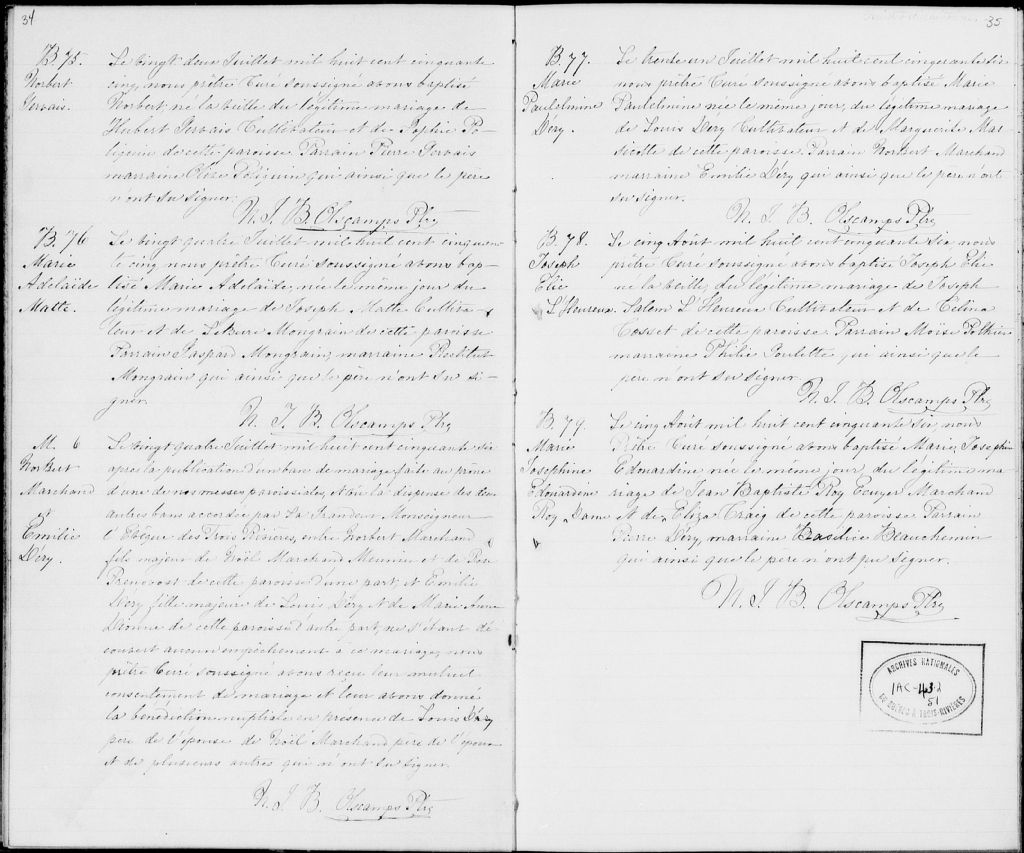 34
B. 75.
Norbert
Gervais.
Le vingt deux Juillet mil huit cent cinquante
cinq nous prêtre Curé soussigné avons baptisé
Norbert né la veille du légitime mariage de
Hubert Gervais Cultivateur et de Sophie Po-
liquin de cette paroisse. Parrain Pierre Gervais
marraine Poliquin qui ainsi que le père
n'ont su signer.
N. J. B. Olscamps Ptre
B. 76
Marie
Adelaïde
Matte.
Le vingt quatre Juillet mil huit cent cinquan-
te cinq nous prêtre Curé soussigné avons bap-
tisé Marie Adelaide, née le même jour du
légitime mariage de Joseph Matte Cultiva-
teur et de Mongrain de cette paroisse
Parrain Gaspard Mongrain, marraine Restitut
Mongrain qui ainsi que le père n'ont su si-
gner.
N. J. B. Olscamps Ptre
M. 6
Norbert
Marchand
et
Emilie
Déry.
Le vingt quatre Juillet mil huit cent cinquante six
après la publication d'un ban de mariage faite au prône
d'une de nos messes paroissiales, et vu la dispense des deux
autres bans accordée par Sa Grandeur Monseigneur
l'Evêque des Trois Rivières, entre Norbert Marchand
fils majeur de Noël Marchand Meunier et de
Prenovost de cette paroisse d'une part, et Emilie
Déry fille majeure de Louis Déry et de Marie Anne
Dionne de cette paroisse d'autre part, ne s'étant dé-
couvert aucun empêchement à ce mariage, nous
prêtre Curé soussigné avons reçu leur mutuel
consentement de mariage et leur avons donné
la bénédiction nuptiale en présence de Louis Déry
père de l'épouse de Noël Marchand père de l'époux
et de plusieurs autres qui n'ont su signer.
N. J. B. Olscamps Ptre
35
B. 77.
Marie
Paulelmine
Déry.
Le trente un Juillet mil huit cent cinquante six
nous prêtre Curé soussigné avons baptisé Marie
Paulelmine née le même jour, du légitime mariage
de Louis Déry Cultivateur et de Marguerite Mar-
sicotte de cette paroisse. Parrain Norbert Marchand
marraine Emilie Déry qui ainsi que le père n'ont
su signer.
N. J. B. Olscamps Ptre
B. 78.
Joseph
Elie
L'Heureux
Le cinq Août mil huit cent cinquante six nous
prêtre Curé soussigné avons baptisé Joseph Elie
né la veille, du légitime mariage de Joseph
Salem L'Heureux Cultivateur et de Célina
Cosset de cette paroisse Parrain Moïse Pothier
marraine Philie Goulette qui ainsi que le
père n'ont su signer.
N. J. B. Olscamps Ptre
B. 79.
Marie
Josephine
Edouardine
Roy Dame
Le cinq Août mil huit cent cinquante six, nous
Prêtre Curé soussigné avons baptisé Marie Josephine
Edouardine née le même jour, du légitime ma-
riage de Jean Baptiste Roy Ecuyer Marchand
et de Eliza Craig de cette paroisse Parrain
Pierre Déry, marraine Basilice Beauchemin
qui ainsi que le père n'ont pu signer.
N. J. B. Olscamps Ptre
ARCHIVES NATIONALES
1AC-432
51
DU QUÉBEC À TROIS-RIVIÈRES